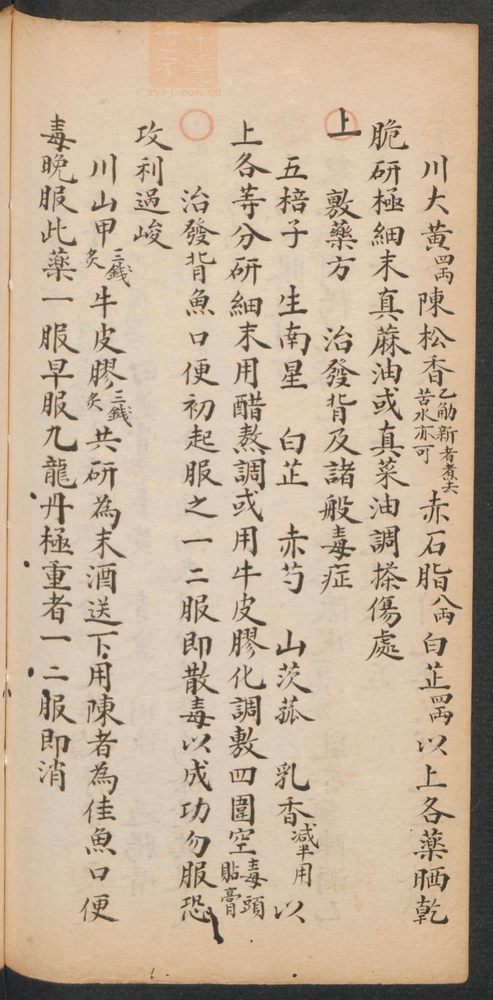 川大黃四両陳松香乙觔新者煮去苦水亦可赤石脂八両白芷四両以上各藥晒乾
脆研極細末真蔴油或真菜油調搽傷處
上 敷藥方 治發背及諸般毒症
五棓子 生南星 白芷 赤芍 山茨菰 乳香减半用 以
上各等分研細末用醋熬調或用牛皮膠化調敷四圍空毒頭貼膏
治發背魚口便初起服之一二服即散毒以成功勿服恐
攻利過峻
川山甲三錢炙牛皮膠三錢炙共研為末酒送下用陳者為佳魚口便
毒晚服此藥一服早服九龍丹極重者一二服即消